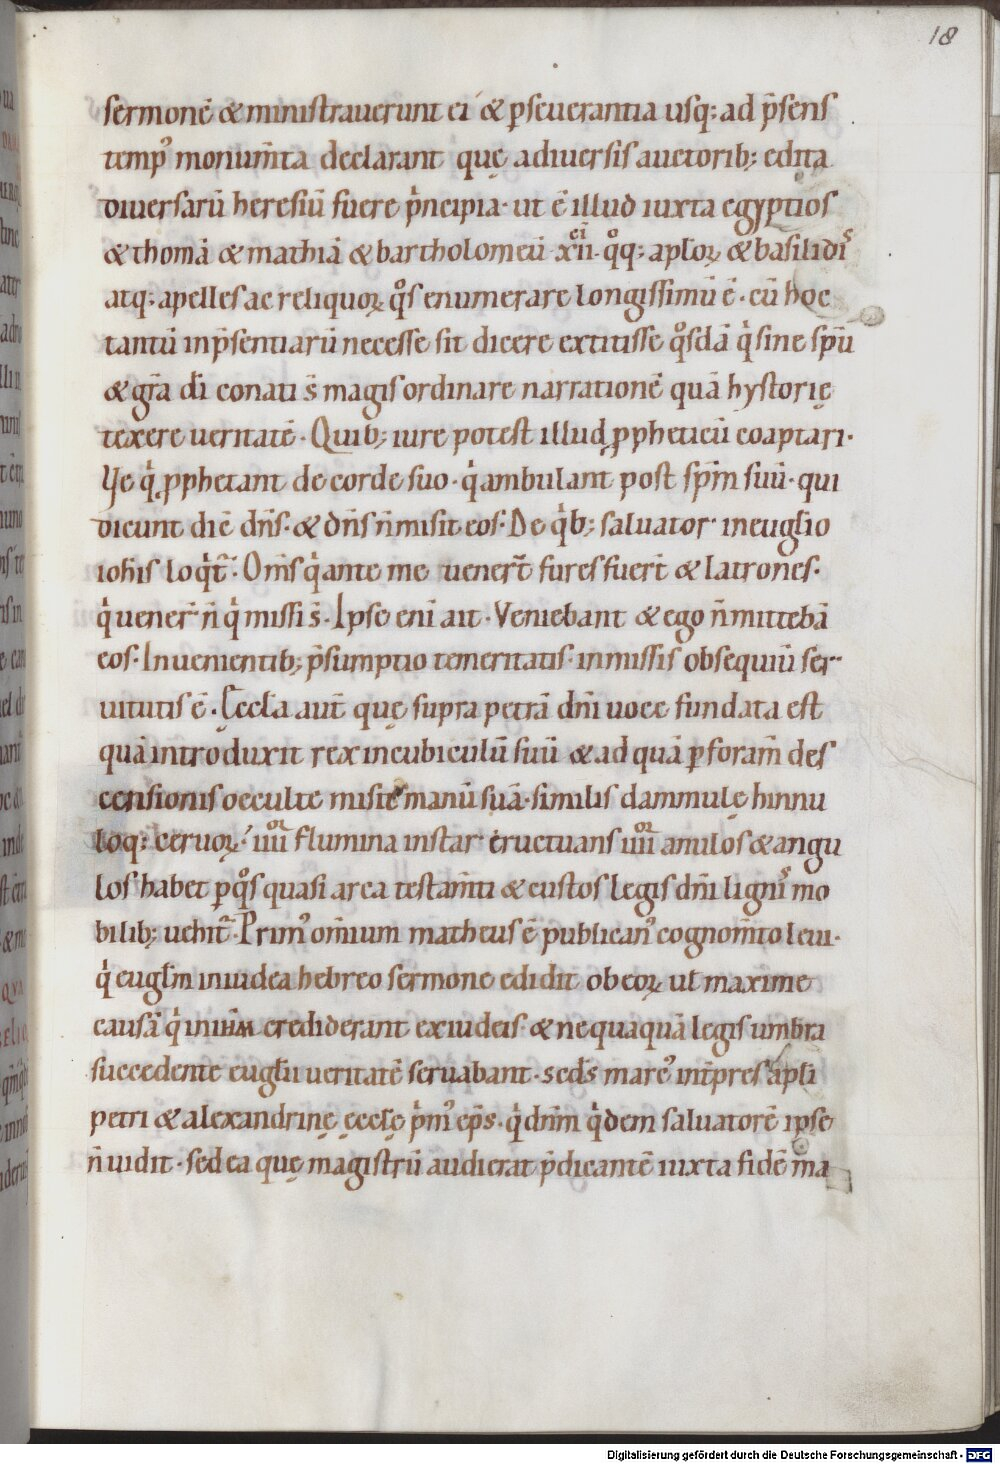 18
sermonē & ministrauerunt ei & ꝑseuerantia usq; ad p̄sens
temp᾽ monum̄ta declarant quę adiuersis auctorib; edita
diuersarū heresiū fuere pͥncipia· ut ē illud iuxta egyptios
& thomā & mathiā & bartholomeū xͨiͥi· qͦq; aplꝝ & basilidis
atq; apelles ac reliquoꝝ qͦs enumerare longissimū ē· cū hoc
tantū inp̄sentiarū necesse sit dicere extitisse qͦsdā qͥ sine sp̄u
& gr̄a dī conati s̄ magis ordinare narrationē quā hystorię
texere ueritatē· Quib; iure potest illud ꝓpheticū coaptari·
Ve qͥ ꝓphetant de corde suo· qͥ ambulant post sp̄m suū· qui
dicunt dic̄ dn̄s· & dn̄s n̄ misit eos· De qͥb; saluator in euglio
iohis loqͥt̄· Om̄s qͥ ante me uener̄t fures fuer̄t & latrones·
qͥ uener̄ n̄ qͥ missi s̄· Ipse eni ait· Veniebant & ego n̄ mittebā
eos· In uenientib; p̄sumptio temeritatis· in missis obsequiū ser-
uitutis ē· Eccła aut̄ quę supra petrā dn̄i uoce fundata est
quā introduxit rex in cubiculū suū & ad quā ꝑ foram̄ des
censionis occulte misit manū suā· similis dammulę hinnu
loq; ceruoꝝ· iiii͛ flumina instar eructuans iiii͛ anulos & angu
los habet ꝑ qͦs quasi arca testam̄ti & custos legis dn̄i lignis mo
bilib; uehit̄· Prim᾽ omium matheus ē publican᾽ cognom̄to leui·
qͥ eugl̄m in iudea hebreo sermone edidit ob eoꝝ uł maxime
causā qͥ in ihm crediderant ex iudeis· & nequaquā legis umbra
succedente eugl̄ii ueritatē seruabant· secd̄s marc᾽ int̄pres apli
petri & alexandrinę ęcclę pͥm᾽ ep̄s· qͥ dn̄m qͥdem saluatorē ipse
n̄ uidit· sed ea quę magistrū audierat p̄dicantē iuxta fidē ma
Digitalisierung gefördert durch die Deutsche Forschungsgemeinschaft - DFG